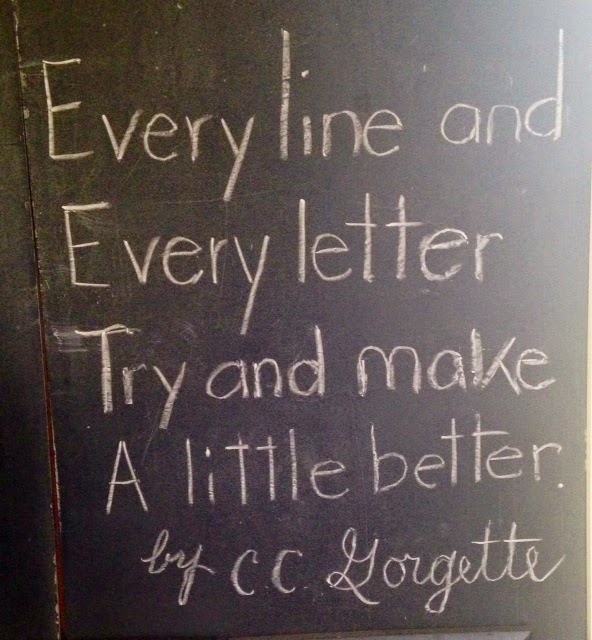 Every line and
Every letter
Try and make
A little better.
by C.C. Gorgette